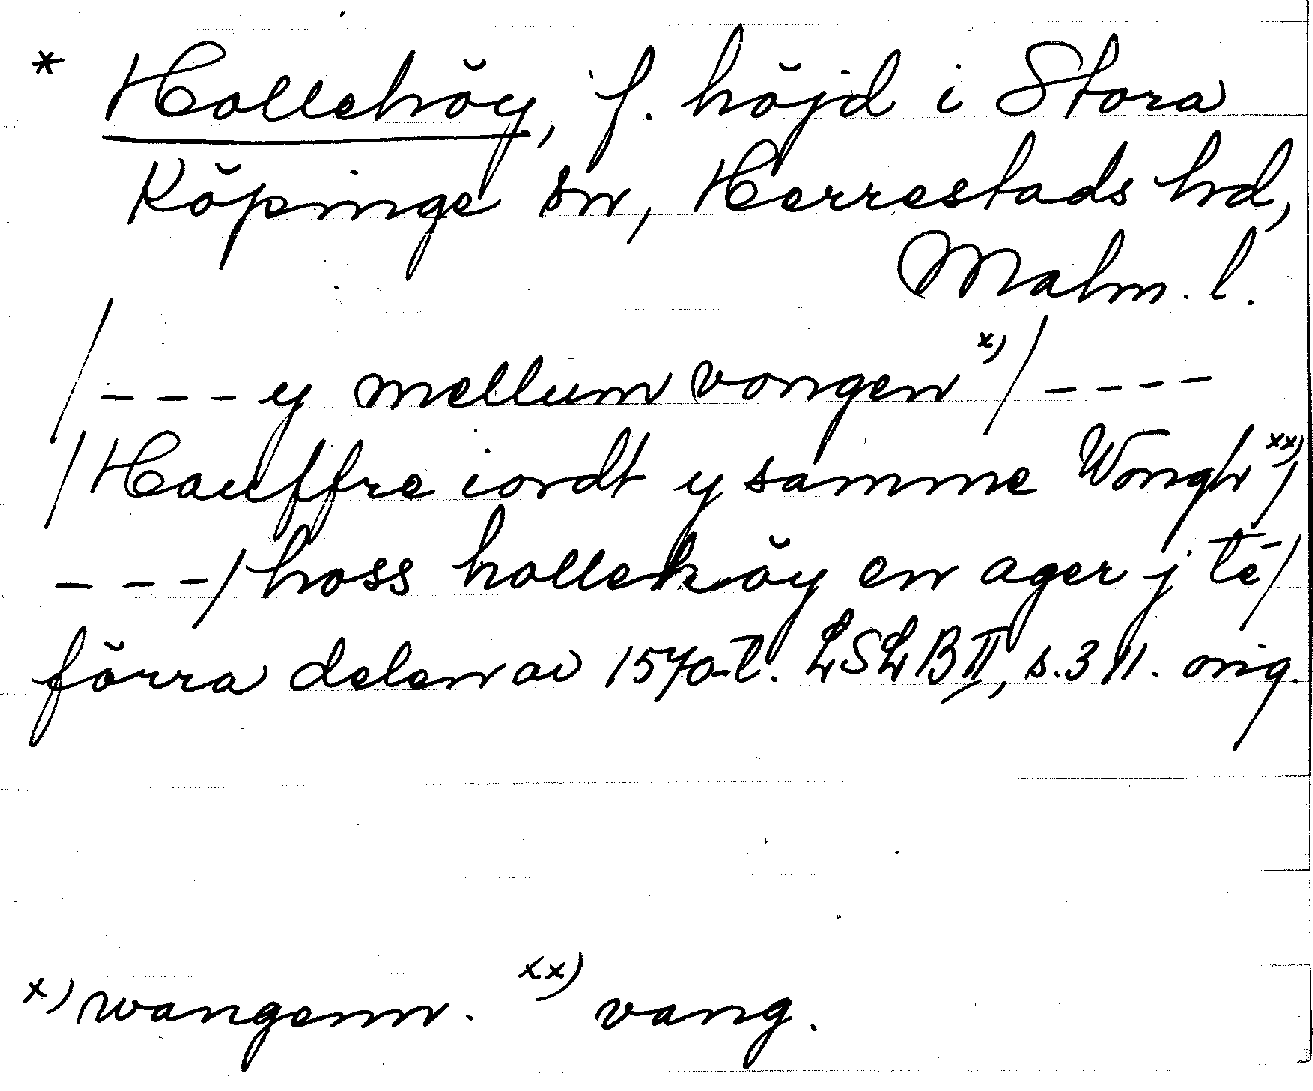 * Hollehöy, f. höjd i Stora
Köpinge sn, Herrestads hd,
Malm. l.
/---y mellum vongen x)/----
/Hauffre iordt y samme Wongh xx)/
---/hoss hollehöy en ager j te/
förra delen av 1570-t. LSLB II, s. 311. orig.
x) wangenn. xx) vang.